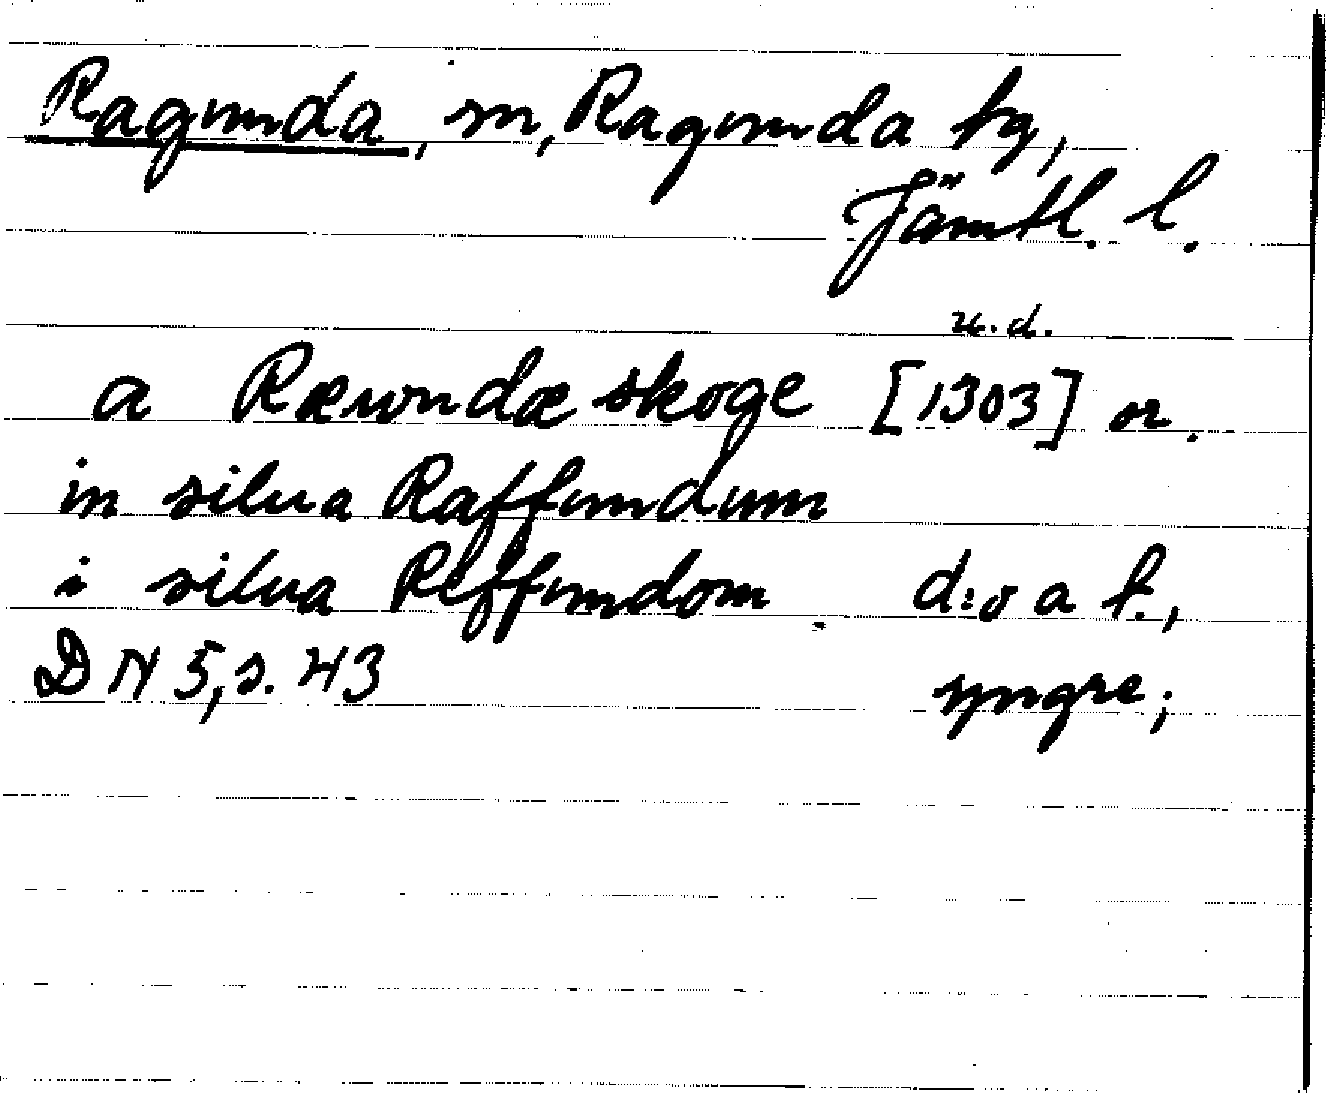 Ragunda, sn, Ragunda tg,
Jämtl. l.
u. d.
a Ræwndæ skoge [1303] or.
in silua Raffundum
i silua Reffundom d:o a f.,
DN 5, s. 43 yngre;